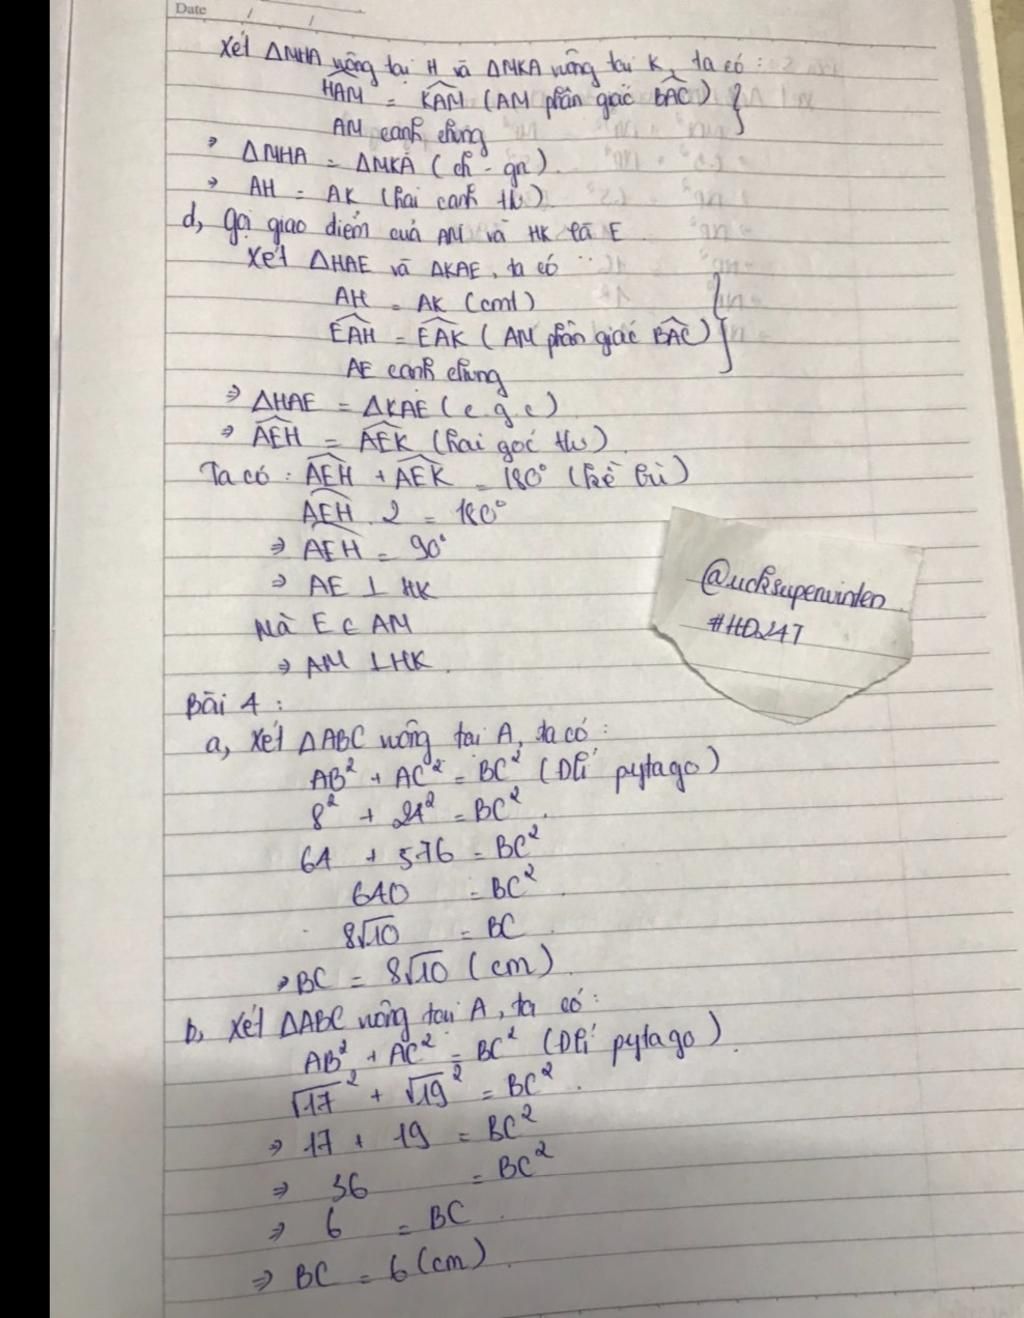 Date / /
Xét ΔMHA vuông tại H và ΔMKA vuông tại K, ta có :
HAM = KAM (AM phân giác BAC) }
AM cạnh chung
⇒ ΔMHA = ΔMKA (ch - gn).
⇒ AH = AK (hai cạnh tư).
d, Gọi giao điểm của AM và HK là E.
Xét ΔHAE và ΔKAE, ta có :
AH = AK (cmt)
EAH = EAK (AM phân giác BAC) }
AE cạnh chung
⇒ ΔHAE = ΔKAE (c g c).
⇒ AEH = AEK (hai góc tư).
Ta có : AEH + AEK = 180° (kề bù)
AEH . 2 = 180°
⇒ AEH = 90°
⇒ AE ⊥ HK
Mà E ∈ AM
⇒ AM ⊥ HK.
@ucksuperwinten
#HD247
Bài 4 :
a, Xét ΔABC vuông tại A, ta có :
AB² + AC² = BC² (Đlí pytago)
8² + 24² = BC².
64 + 576 = BC²
640 = BC².
8√10 = BC.
⇒ BC = 8√10 (cm).
b, Xét ΔABC vuông tại A, ta có :
AB² + AC² = BC² (Đlí pytago).
√17² + √19² = BC².
⇒ 17 + 19 = BC²
⇒ 36 = BC²
⇒ 6 = BC.
⇒ BC = 6 (cm).